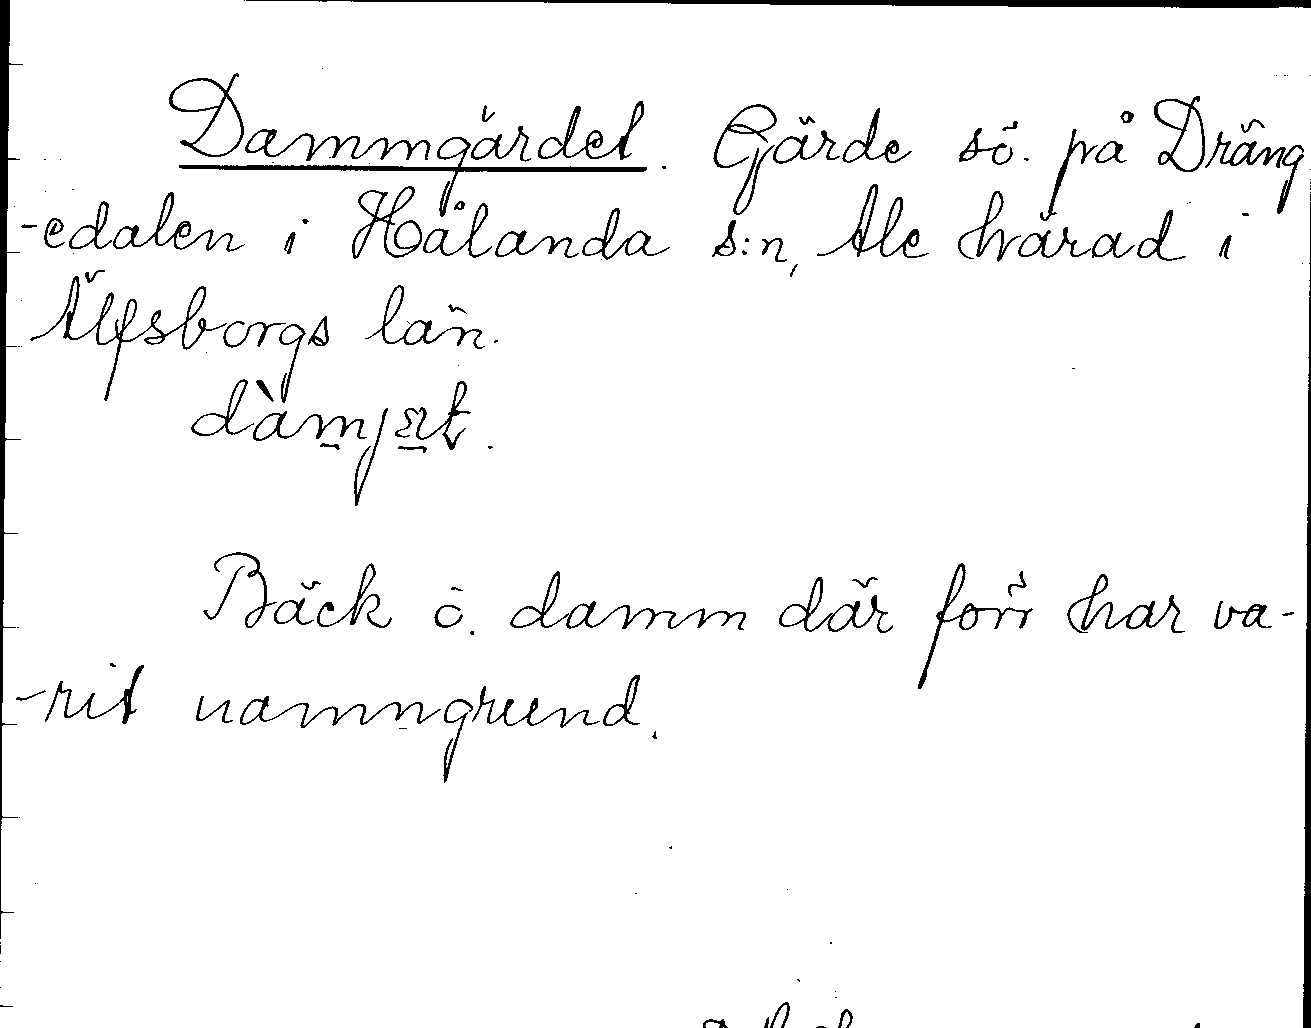 Dammgärdet. Gärde sö. på Dräng
-edalen i Hålanda s:n, Ale härad i
Älfsborgs län.
Bäck o. damm där förr har va-
-rit namngrund.